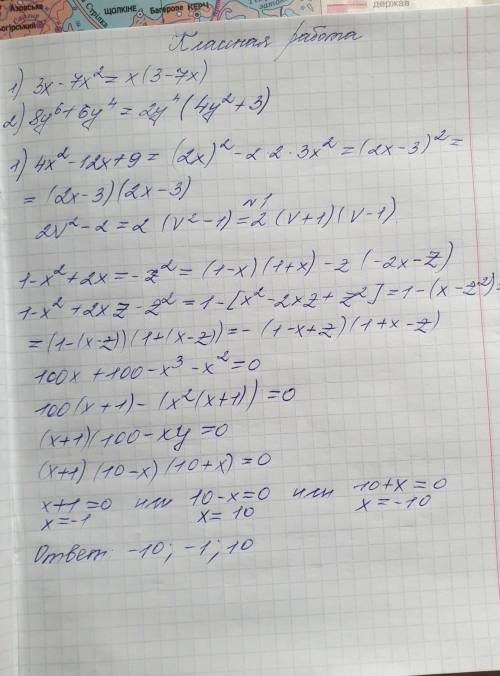 Азовське
Стрілка
ЩОЛКІНЕ
Багерове КЕРЧ
огірський
держав
Классная работа
1) 3x - 7x² = x (3 - 7x)
2) 8y⁶ + 6y⁴ = 2y⁴ (4y² + 3)
1) 4x² - 12x + 9 = (2x)² - 2·2·3x² = (2x - 3)² =
= (2x - 3)(2x - 3)
№1
2v² - 2 = 2 (v² - 1) = 2 (v + 1)(v - 1)
1 - x² + 2x = - z² = (1 - x)(1 + x) - z (-2x - z)
1 - x² + 2xz - z² = 1 - [x² - 2xz + z²] = 1 - (x - z²) =
= (1 - (x - z))(1 + (x - z)) = - (1 - x + z)(1 + x - z)
100x + 100 - x³ - x² = 0
100 (x + 1) - (x² (x + 1)) = 0
(x + 1)(100 - xy = 0
(x + 1)(10 - x)(10 + x) = 0
x + 1 = 0 или 10 - x = 0 или 10 + x = 0
x = -1 x = 10 x = -10
Ответ -10; -1; 10